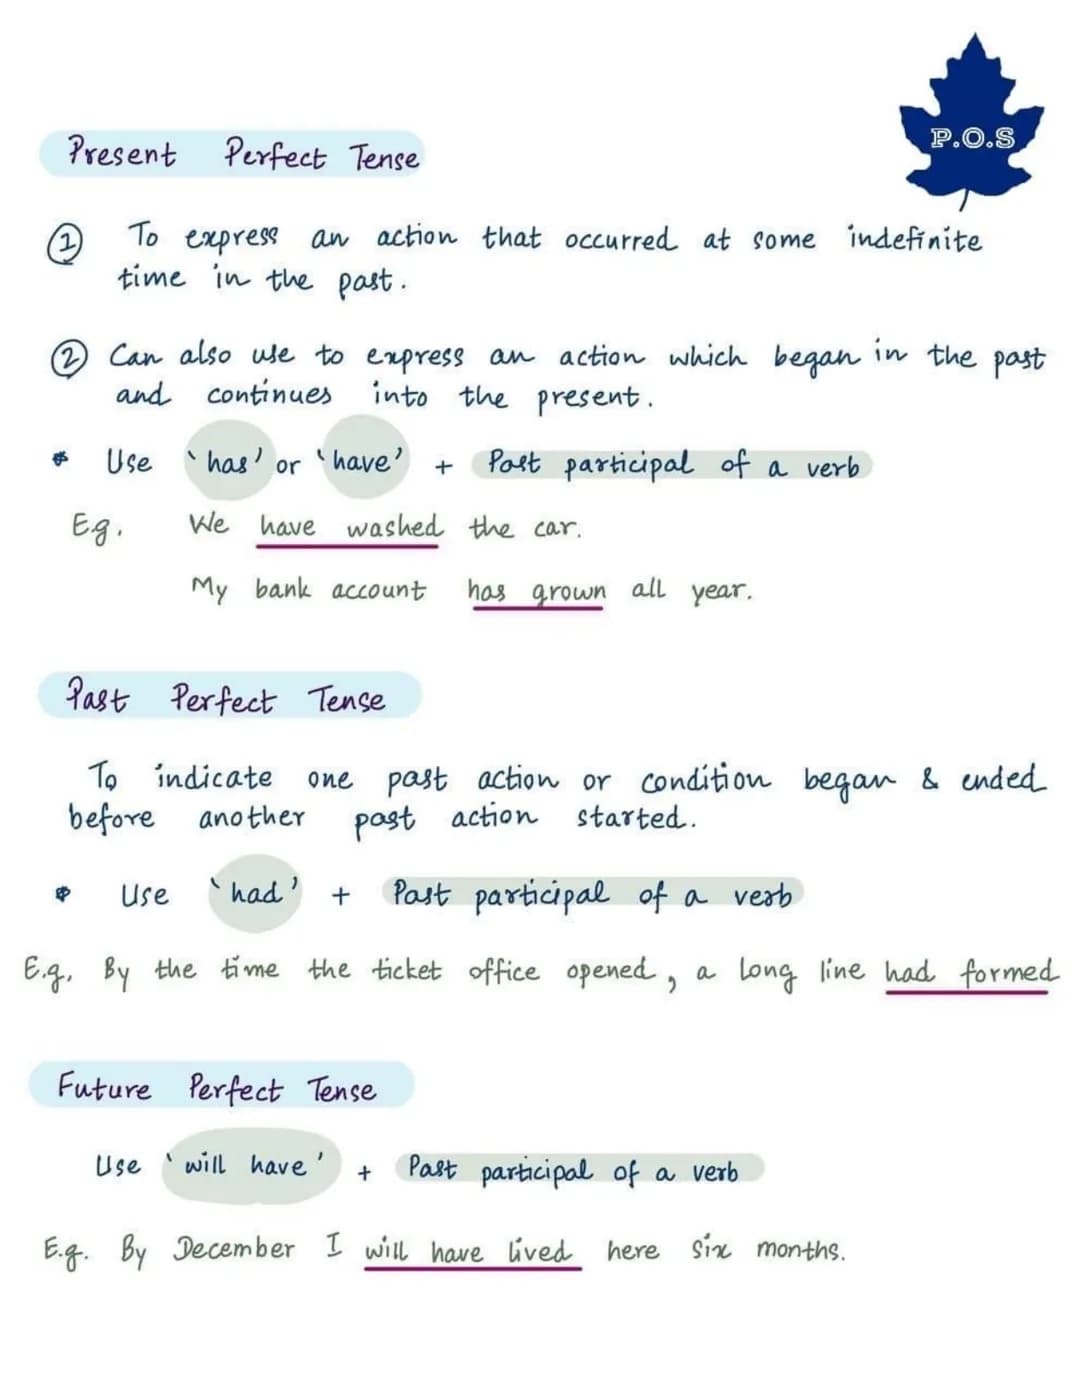 P.O.S
Present Perfect Tense
① To express an action that occurred at some indefinite
time in the past.
② Can also use to express an action which began in the past
and continues into the present.
* Use 'has' or 'have' + Past participal of a verb
Eg. We have washed the car.
My bank account has grown all year.
Past Perfect Tense
To indicate one past action or condition began & ended
before another past action started.
* Use 'had' + Past participal of a verb
E.g. By the time the ticket office opened, a long line had formed
Future Perfect Tense
Use 'will have' + Past participal of a verb
E.g. By December I will have lived here six months.